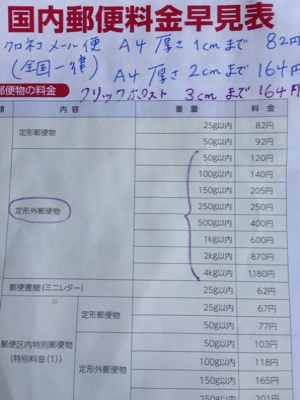 国内郵便料金早見表
クロネコメール便 A4 厚さ 1cmまで 82円
(全国一律) A4 厚さ 2cmまで 164円
クリックポスト 3cmまで 164円
郵便物の料金
類 内容 重量 料金
定形郵便物 25g以内 82円
50g以内 92円
定形外郵便物 50g以内 120円
100g以内 140円
150g以内 205円
250g以内 250円
500g以内 400円
1kg以内 600円
2kg以内 870円
4kg以内 1,180円
郵便書簡(ミニレター) 25g以内 62円
郵便区内特別郵便物
(特別料金(1))
定形郵便物 25g以内 67円
50g以内 77円
定形外郵便物 50g以内 103円
100g以内 118円
150g以内 165円
250g以内 201円